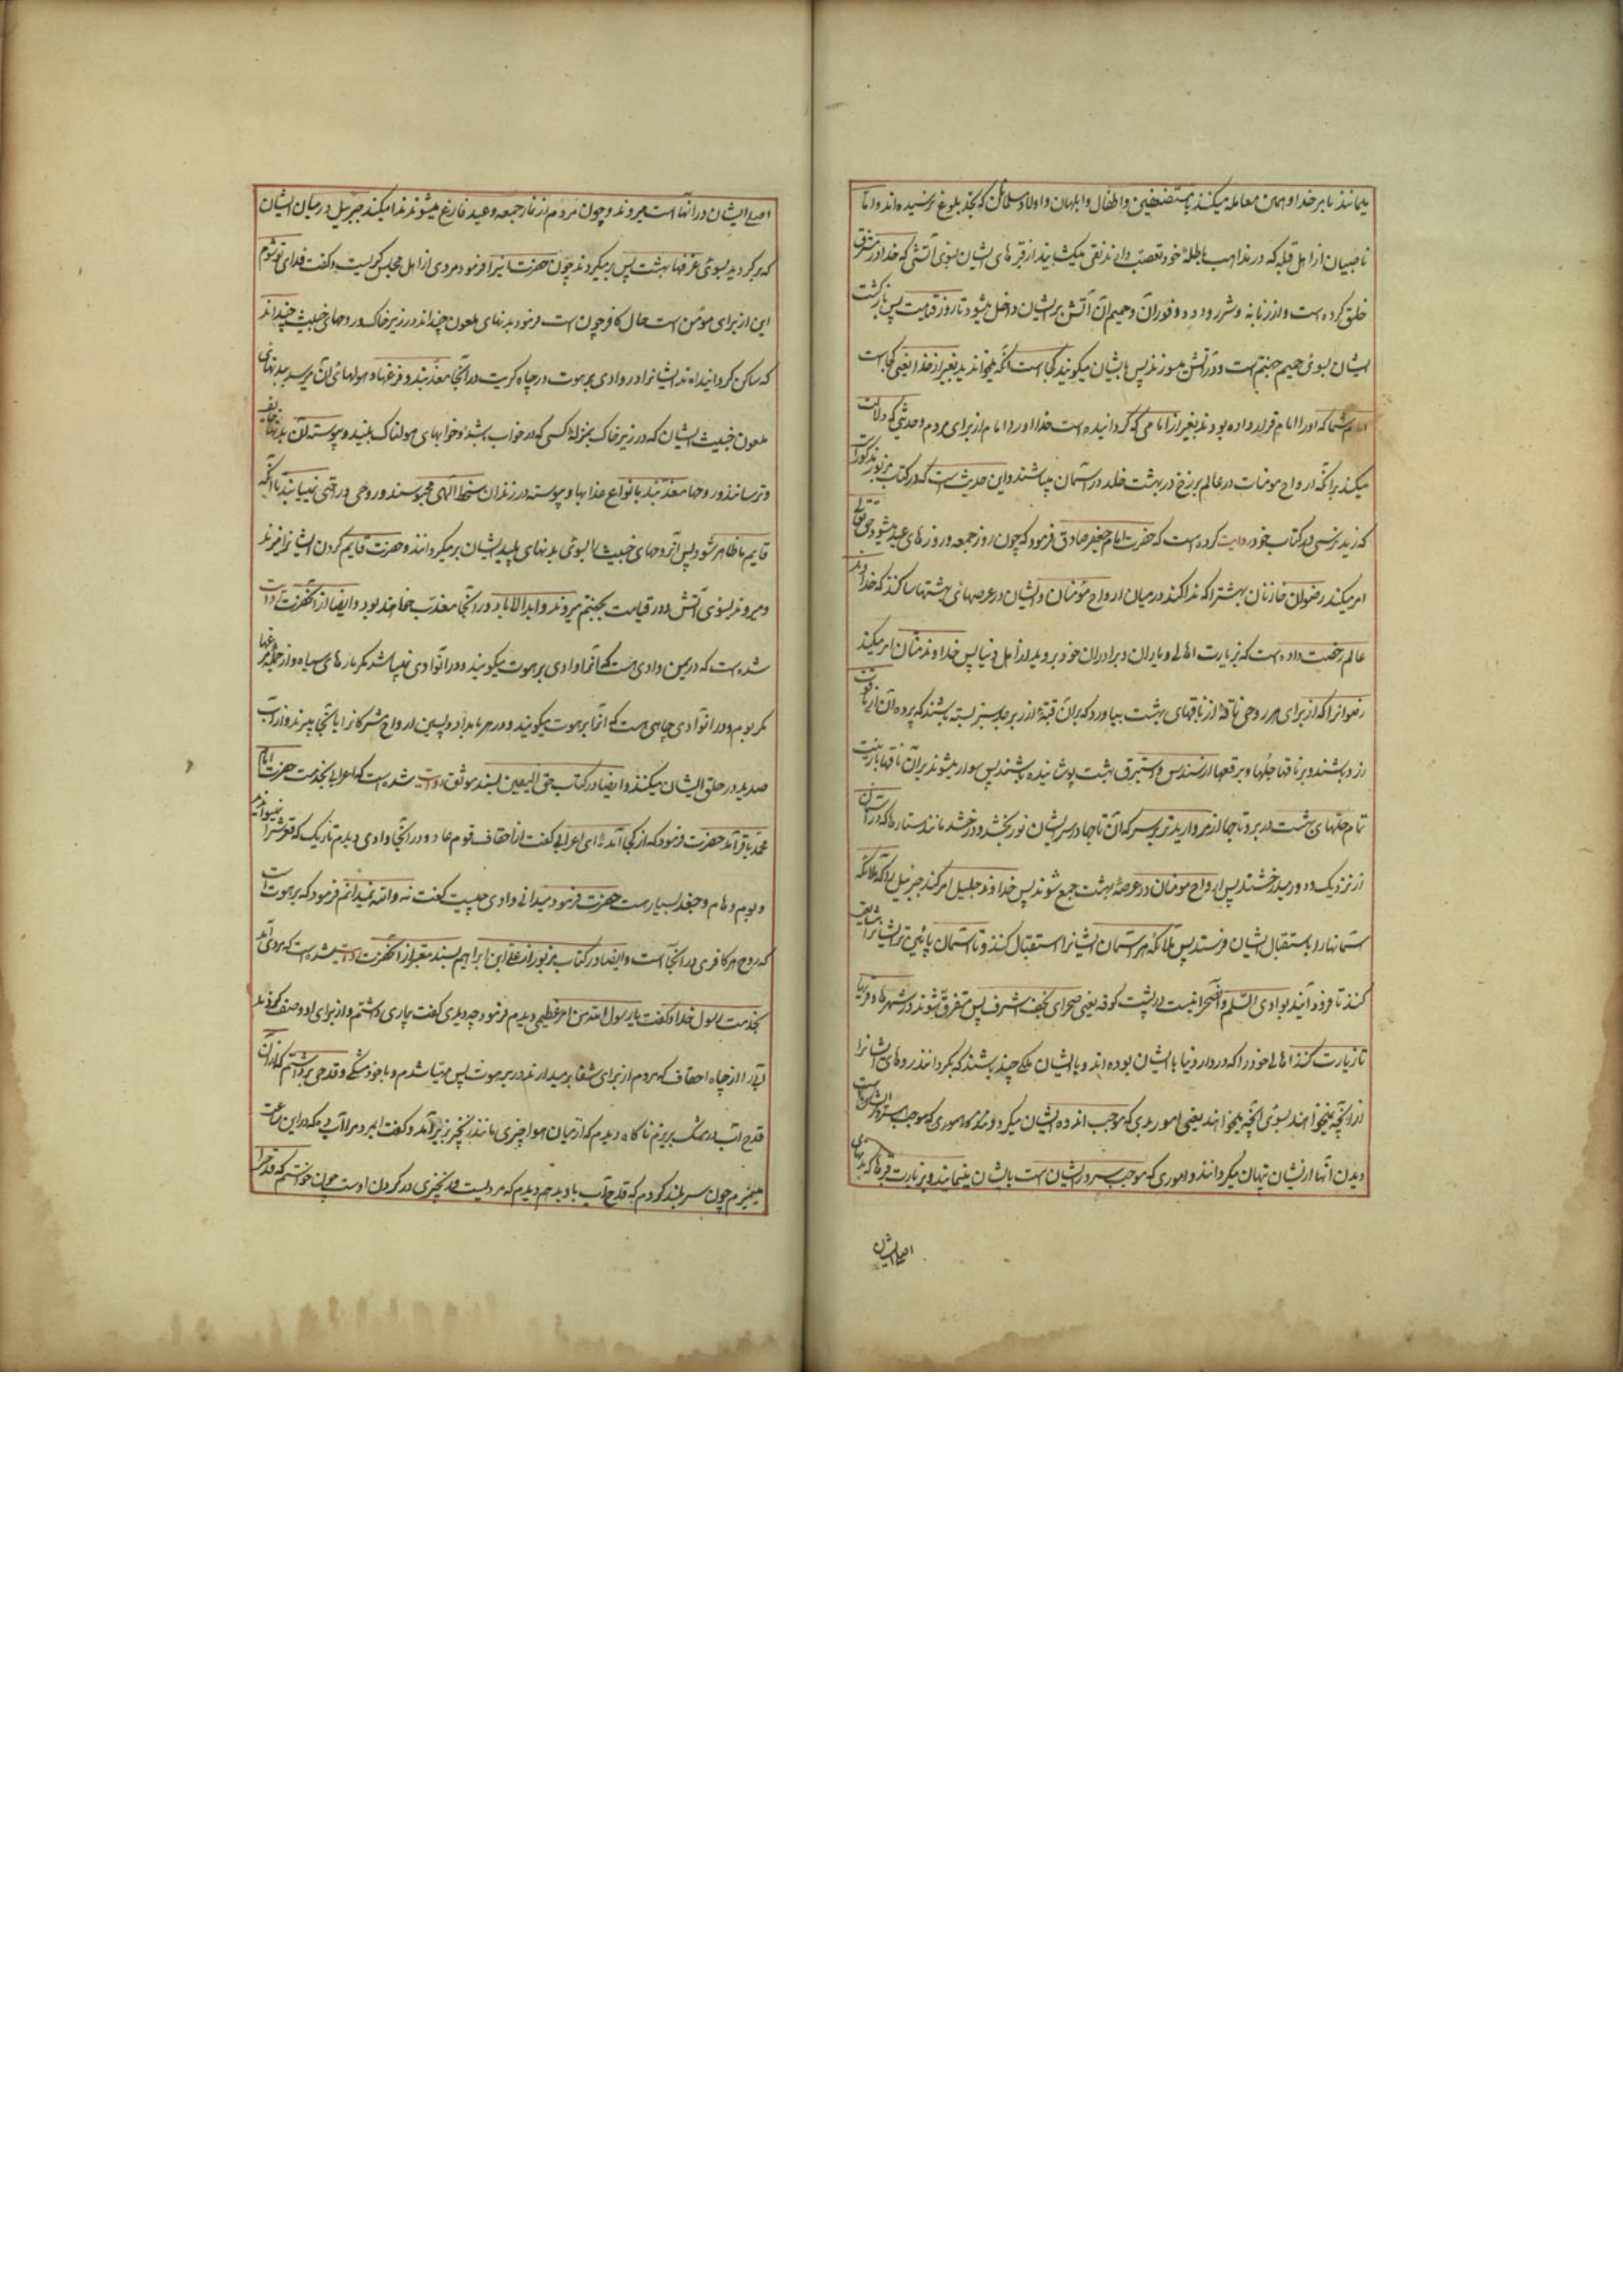 میمانند تا بر خدا و همین معامله میکنند با مستضعفین و اطفال و ابلهان و اولاد مسلمانان که بحد بلوغ نرسیده‌اند و اما
ناصبیان از اهل قبله که در مذاهب باطلهٔ خود تعصب دارند نقبی میکشایند از قبرهای ایشان بسوی آتشی که خدا در مشرق
خلق کرده است و از زبانه و شرر و دود و فوران و حمیم آن آتش بر ایشان داخل میشود تا روز قیامت پس بازگشت
ایشان بسوی حمیم جهنم است و در آتش میسوزند پس بایشان میگویند کجاست آنکه میخواندید بغیر از خدا یعنی کجاست
امام شما که او را امام قرار داده بودند بغیر از امامی که گردانیده است خدا او را امام از برای مردم و حدیثی که دلالت
میکند بر آنکه ارواح مومنان در عالم برزخ در بهشت خلد در آسمان میباشند و این حدیث است که در کتاب مزبور مذکور است
که زید نرسی در کتاب خود روایت کرده است که حضرت امام جعفر صادق فرمود که چون روز جمعه و روزهای عید میشود حق تعالی
امر میکند رضوان خازنان بهشت را که ندا کند در میان ارواح مؤمنان و ایشان در عرصهای بهشتها ساکنند که خداوند
عالم رخصت داده است که بزیارت اهالی و یاران و برادران خود بروید از اهل دنیا پس خداوند منان امر میکند
رضوانرا که از برای هر روحی ناقهٔ از ناقهای بهشت بیاورد که بران قبهٔ از زبرجد سبز بسته باشند که پرده آن از یاقوت
زرد باشند و بر ناقها جلها و برقعها از سندس و استبرق بهشت پوشانیده باشند پس سوار میشوند بر آن ناقها با زینت
تمام حلهای بهشت در بر و تاجها از مروارید تر بر سر که آن تاجها در سر ایشان نور بخشد و درخشد مانند ستارها که در آسمان
از نزدیک و دور میدرخشند پس ارواح مومنان در عرصهٔ بهشت جمع شوند پس خداوند جلیل امر کند جبرئیل را که ملائکه
آسمانها را باستقبال ایشان فرستد پس ملائکه هر آسمان ایشانرا استقبال کنند و تا آسمان پائین تر ایشانرا مشایعت
کنند تا فرود آیند بوادی السلم و آن صحرائیست در پشت کوفه یعنی صحرای نجف اشرف پس متفرق شوند در شهرها و قریها
تا زیارت کنند اهالی خود را که در دار دنیا با ایشان بوده اند و با ایشان ملکی چند باشند که بگردانند روهای ایشانرا
از آنچه نمیخواهند بسوی آنچه میخواهند یعنی امور بدی که موجب اندوه ایشان میگردد و امور که موجب سرور ایشان است
دیدن آنها از ایشان پنهان میگردانند و اموری که موجب سرور ایشان است بایشان مینمایند و بزیارت قبرها که بدنهای
اصلی ایشان
اصلی ایشان در آنها است میروند و چون مردم از نماز جمعه و عید فارغ میشوند ندا میکند جبرئیل در میان ایشان
که برگردید بسوی غرفها بهشت پس برمیگردند چون حضرت اینرا فرمود مردی از اهل مجلس گریست و گفت فدای تو شوم
این از برای مؤمن است حال کافر چون است فرمود بدنهای ملعون چند اند در زیر خاک و روحهای خبیث چند اند
که ساکن گردانیده اند ایشانرا در وادی برهوت در چاه کبریت در آنجا معذبند و فزعها و هولهای آن میرسد ببدنهای
ملعون خبیث ایشان که در زیر خاک بمنزلهٔ کسی که در خواب باشد و خوابهای هولناک بیند و پیوسته آن بدنها خایف
و ترسانند و روحها معذبند بانواع عذابها و پیوسته در زندان سخط الهی محبوسند و روحی و راحتی نمییابند تا آنکه
قایم ما ظاهر شود پس آن روحهای خبیث را بسوی بدنهای پلید ایشان برمیگردانند و حضرت قایم گردن ایشانرا میزند
و میروند بسوی آتش و در قیامت بجهنم میروند و ابد الاباد در آنجا معذب خواهند بود و ایضا از آنحضرت روایت
شده است که در یمن وادی هست که آنرا وادی برهوت میگویند و در آن وادی نمیباشد مگر مارهای سیاه و از جمله مرغها
مگر بوم و در آن وادی چاهی هست که آنرا برهوت میگویند و در هر بامداد و پسین ارواح مشرکانرا بآنجا میبرند و از آب
صدید در حلق ایشان میکنند و ایضا در کتاب حق الیقین بسند موثق روایت شده است که اعرابی بخدمت حضرت امام
محمد باقر آمد حضرت فرمود که از کجا آمدهٔ ای اعرابی گفت از احقاف قوم عاد و در آنجا وادی دیدم تاریک که قعرش را نمیتوان دید
و بوم و هام و جغد بسیار است حضرت فرمود میدانی وادی چیست گفت نه والله نمیدانم فرمود که برهوت است
که روح هر کافری در آنجا است و ایضا در کتاب مزبور از علی ابن ابراهیم بسند معتبر از آنحضرت روایت شده است که مردی آمد
بخدمت رسول خدا و گفت یا رسول الله من امر عظیمی دیدم فرمود چه دیدی گفت بیماری داشتم و از برای او وصف کردند
آبی را از چاه احقاف که مردم از برای شفا برمیدارند در برهوت پس مهیا شدم و با خود مشکی و قدحی برداشتم که از آن
قدح آب در مشک بریزم ناگاه دیدم که از میان هوا چیزی مانند زنجیر بزیر آمد و گفت ای مرد مرا آب ده که در این ساعت
میمیرم چون سر بلند کردم که قدح آب باو بدهم دیدم که مردیست و زنجیری در گردن اوست چون خواستم که قدح را